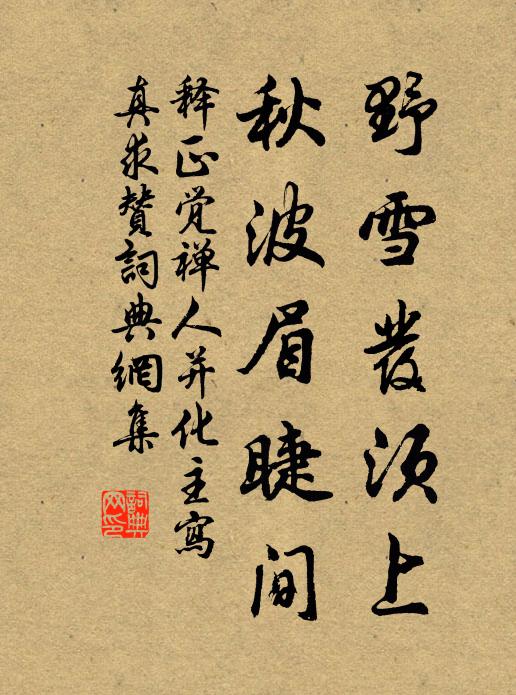 野雪發须上
秋波眉睫间
释正觉禅人并化主寫
真求赞詞典網集
詞典網印